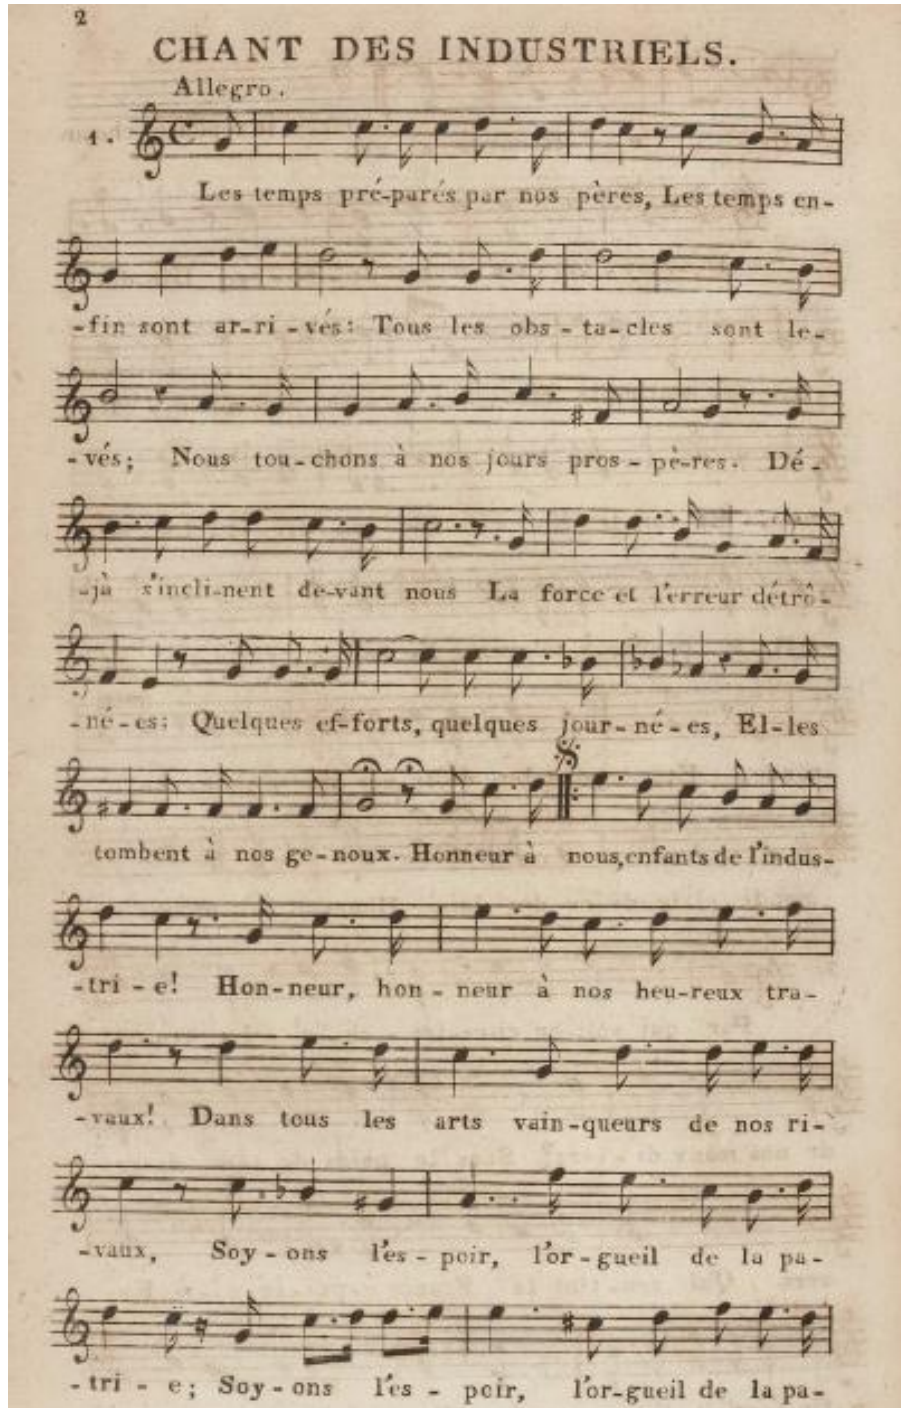 2
CHANT DES INDUSTRIELS.
Allegro.
1.
Les temps pré-parés par nos pères, Les temps en-
-fin sont ar-ri-vés: Tous les obs-ta-cles sont le-
-vés; Nous tou-chons à nos jours pros-pè-res. Dé-
-jà s'incli-nent de-vant nous La force et l'erreur détrô-
-né-es: Quelques ef-forts, quelques jour-né-es, El-les
tombent à nos ge-noux. Honneur à nous, enfants de l'indus-
-tri-e! Hon-neur, hon-neur à nos heu-reux tra-
-vaux! Dans tous les arts vain-queurs de nos ri-
-vaux, Soy-ons l'es-poir, l'or-gueil de la pa-
-tri-e; Soy-ons l'es-poir, l'or-gueil de la pa-